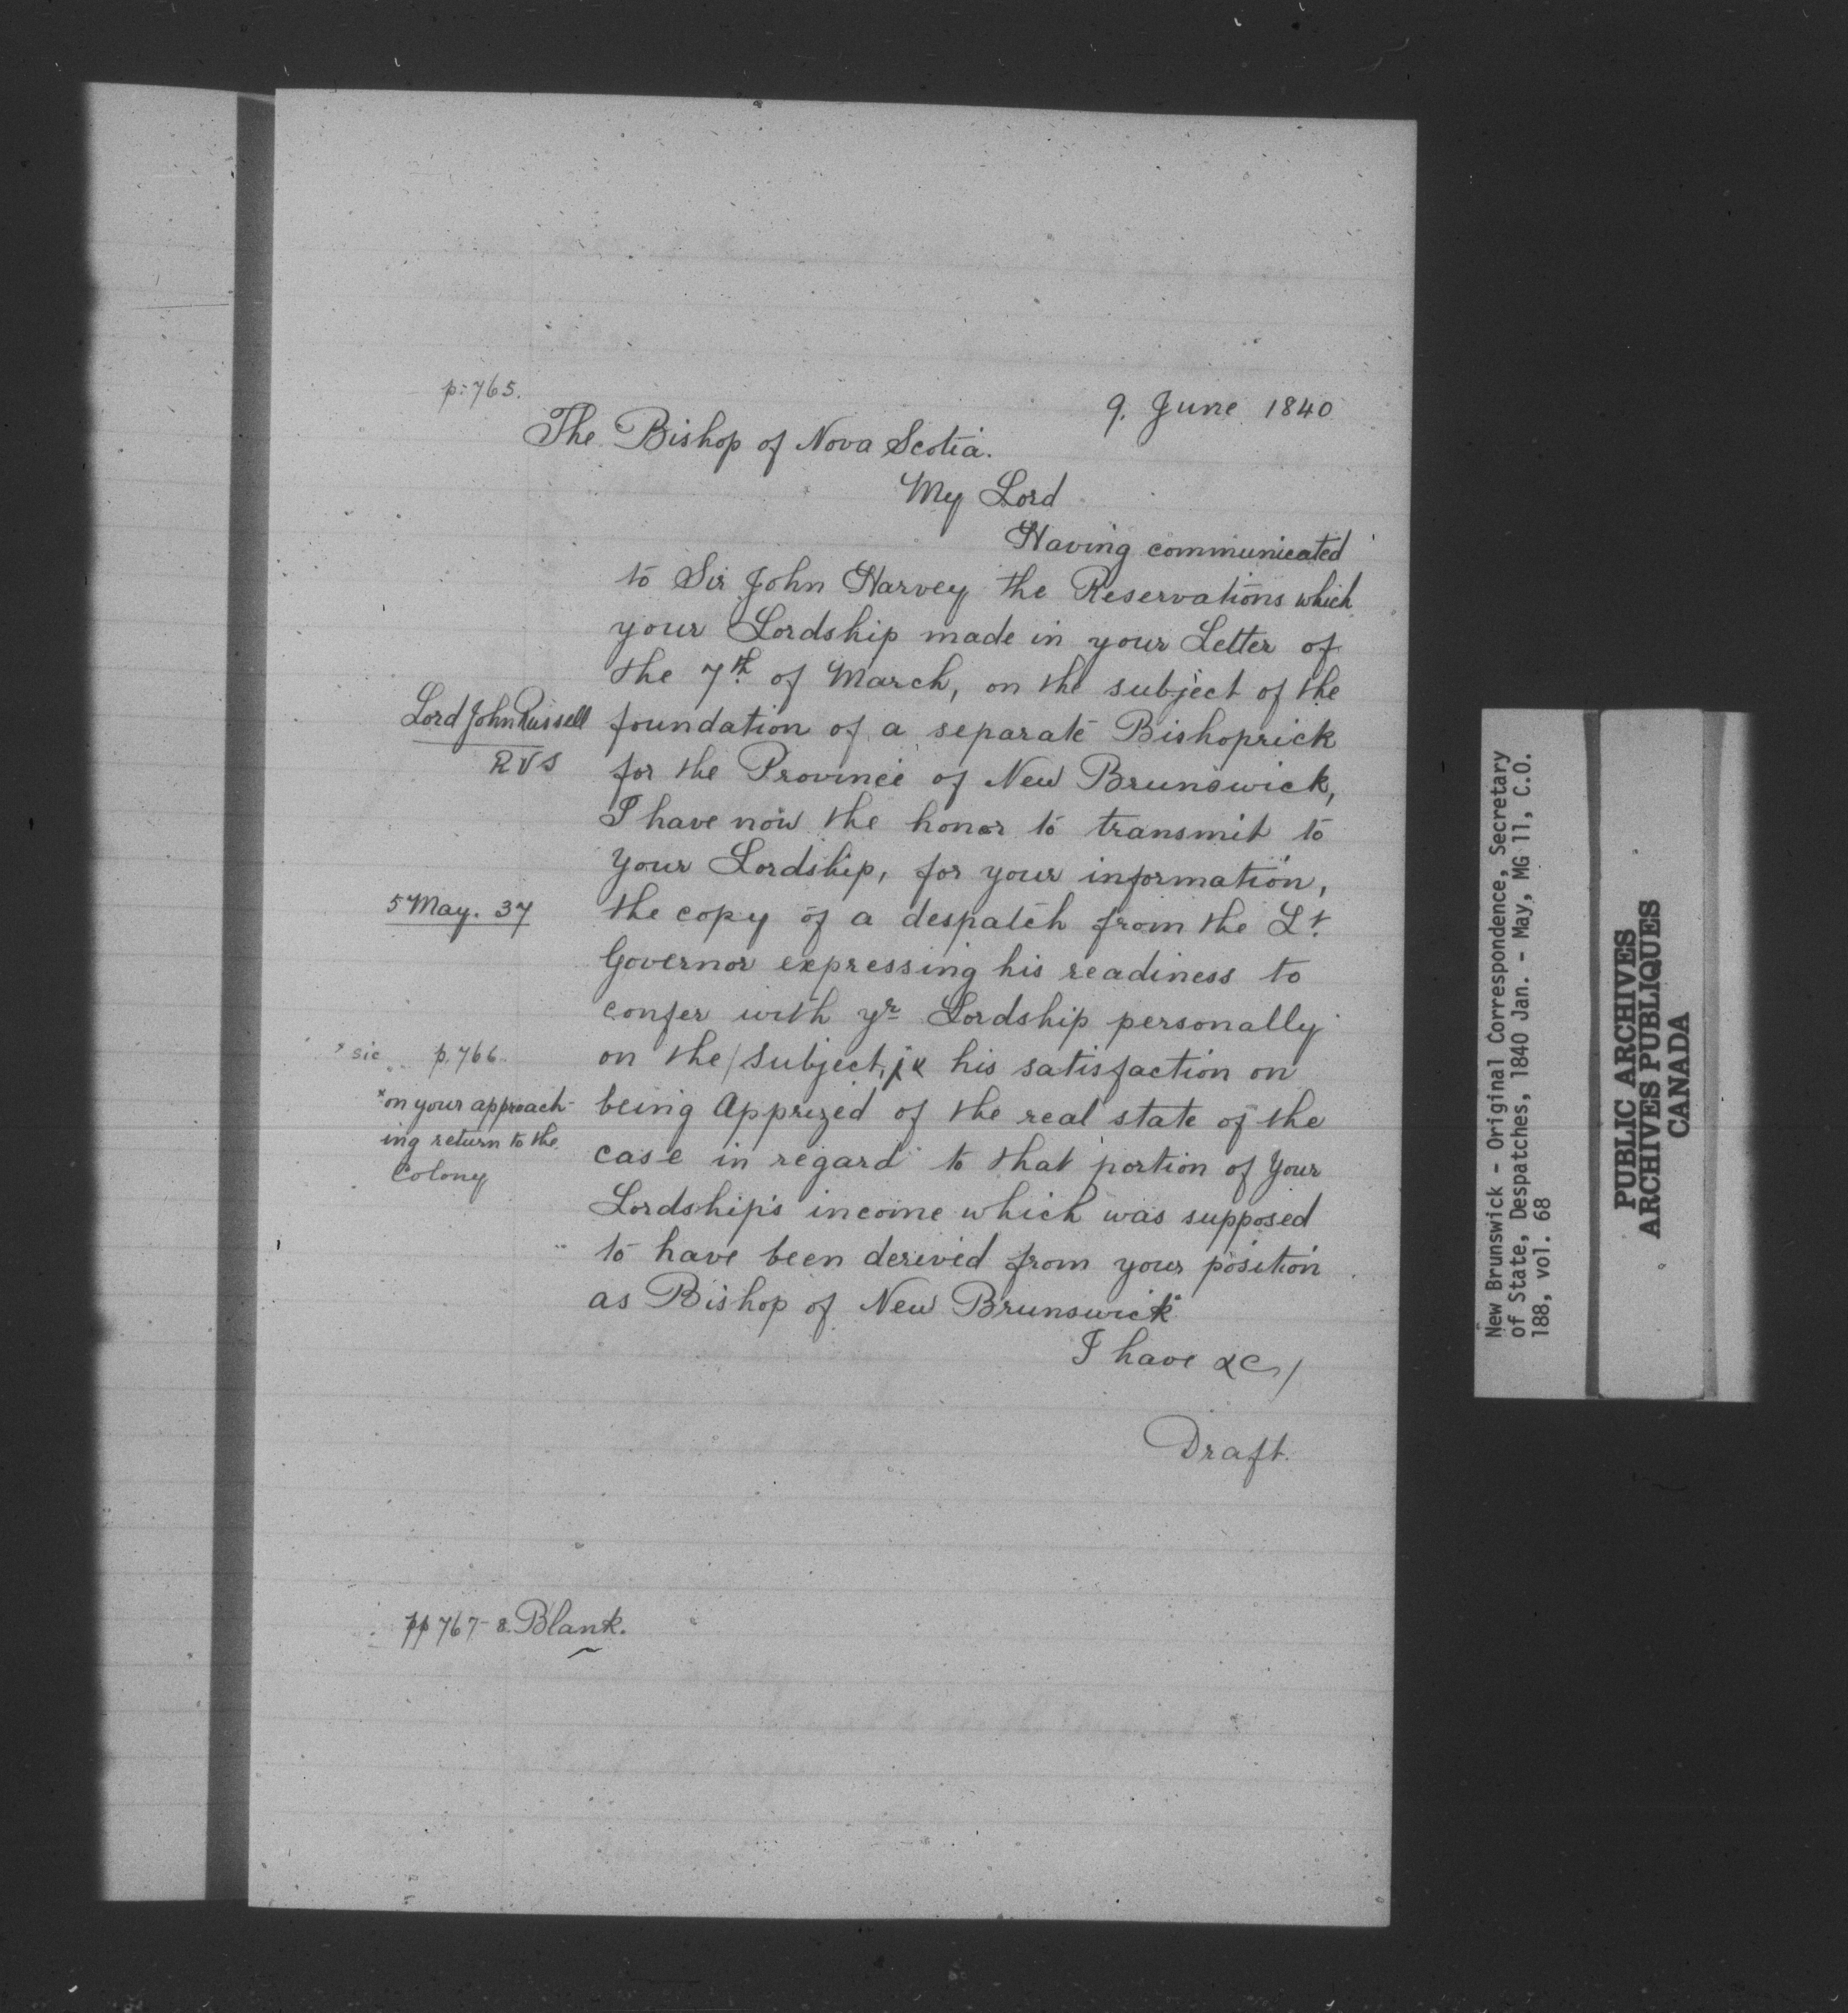 p: 765.
9. June 1840
The Bishop of Nova Scotia.
My Lord
Having communicated
to Sir John Harvey the Reservations which
your Lordship made in your Letter of
the 7th of March, on the subject of the
Lord John Russell
foundation of a separate Bishoprick
RVS
for the Province of New Brunswick,
I have now the honor to transmit to
your Lordship, for your information,
5 May. 37
the copy of a despatch from the Lt.
Governor expressing his readiness to
confer with yr Lordship personally
x sic p. 766
on the / subject, x his satisfaction on
x on your approach-
ing return to the
Colony
being Apprized of the real state of the
case in regard to that portion of Your
Lordship's income which was supposed
to have been derived from your position
as Bishop of New Brunswick
I have &c/
Draft.
pp 767-8. Blank.
New Brunswick - Original Correspondence, Secretary
of State, Despatches, 1840 Jan. - May, MG 11, C.O.
188, vol. 68
PUBLIC ARCHIVES
ARCHIVES PUBLIQUES
CANADA